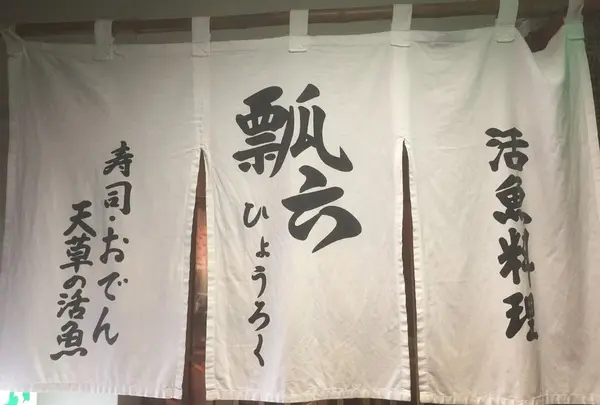 活魚料理
瓢六
ひょうろく
寿司・おでん
天草の活魚